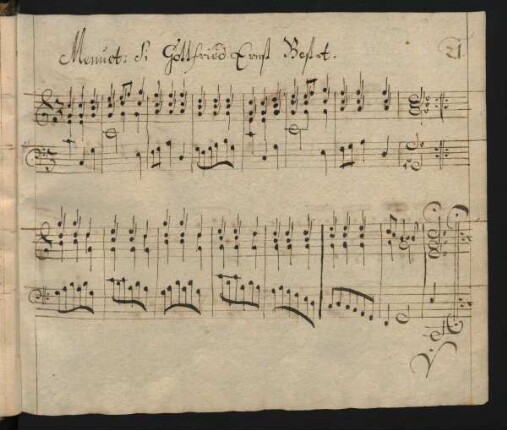 Menuet: Si Gottfried Ernst Bestel.
21
V.